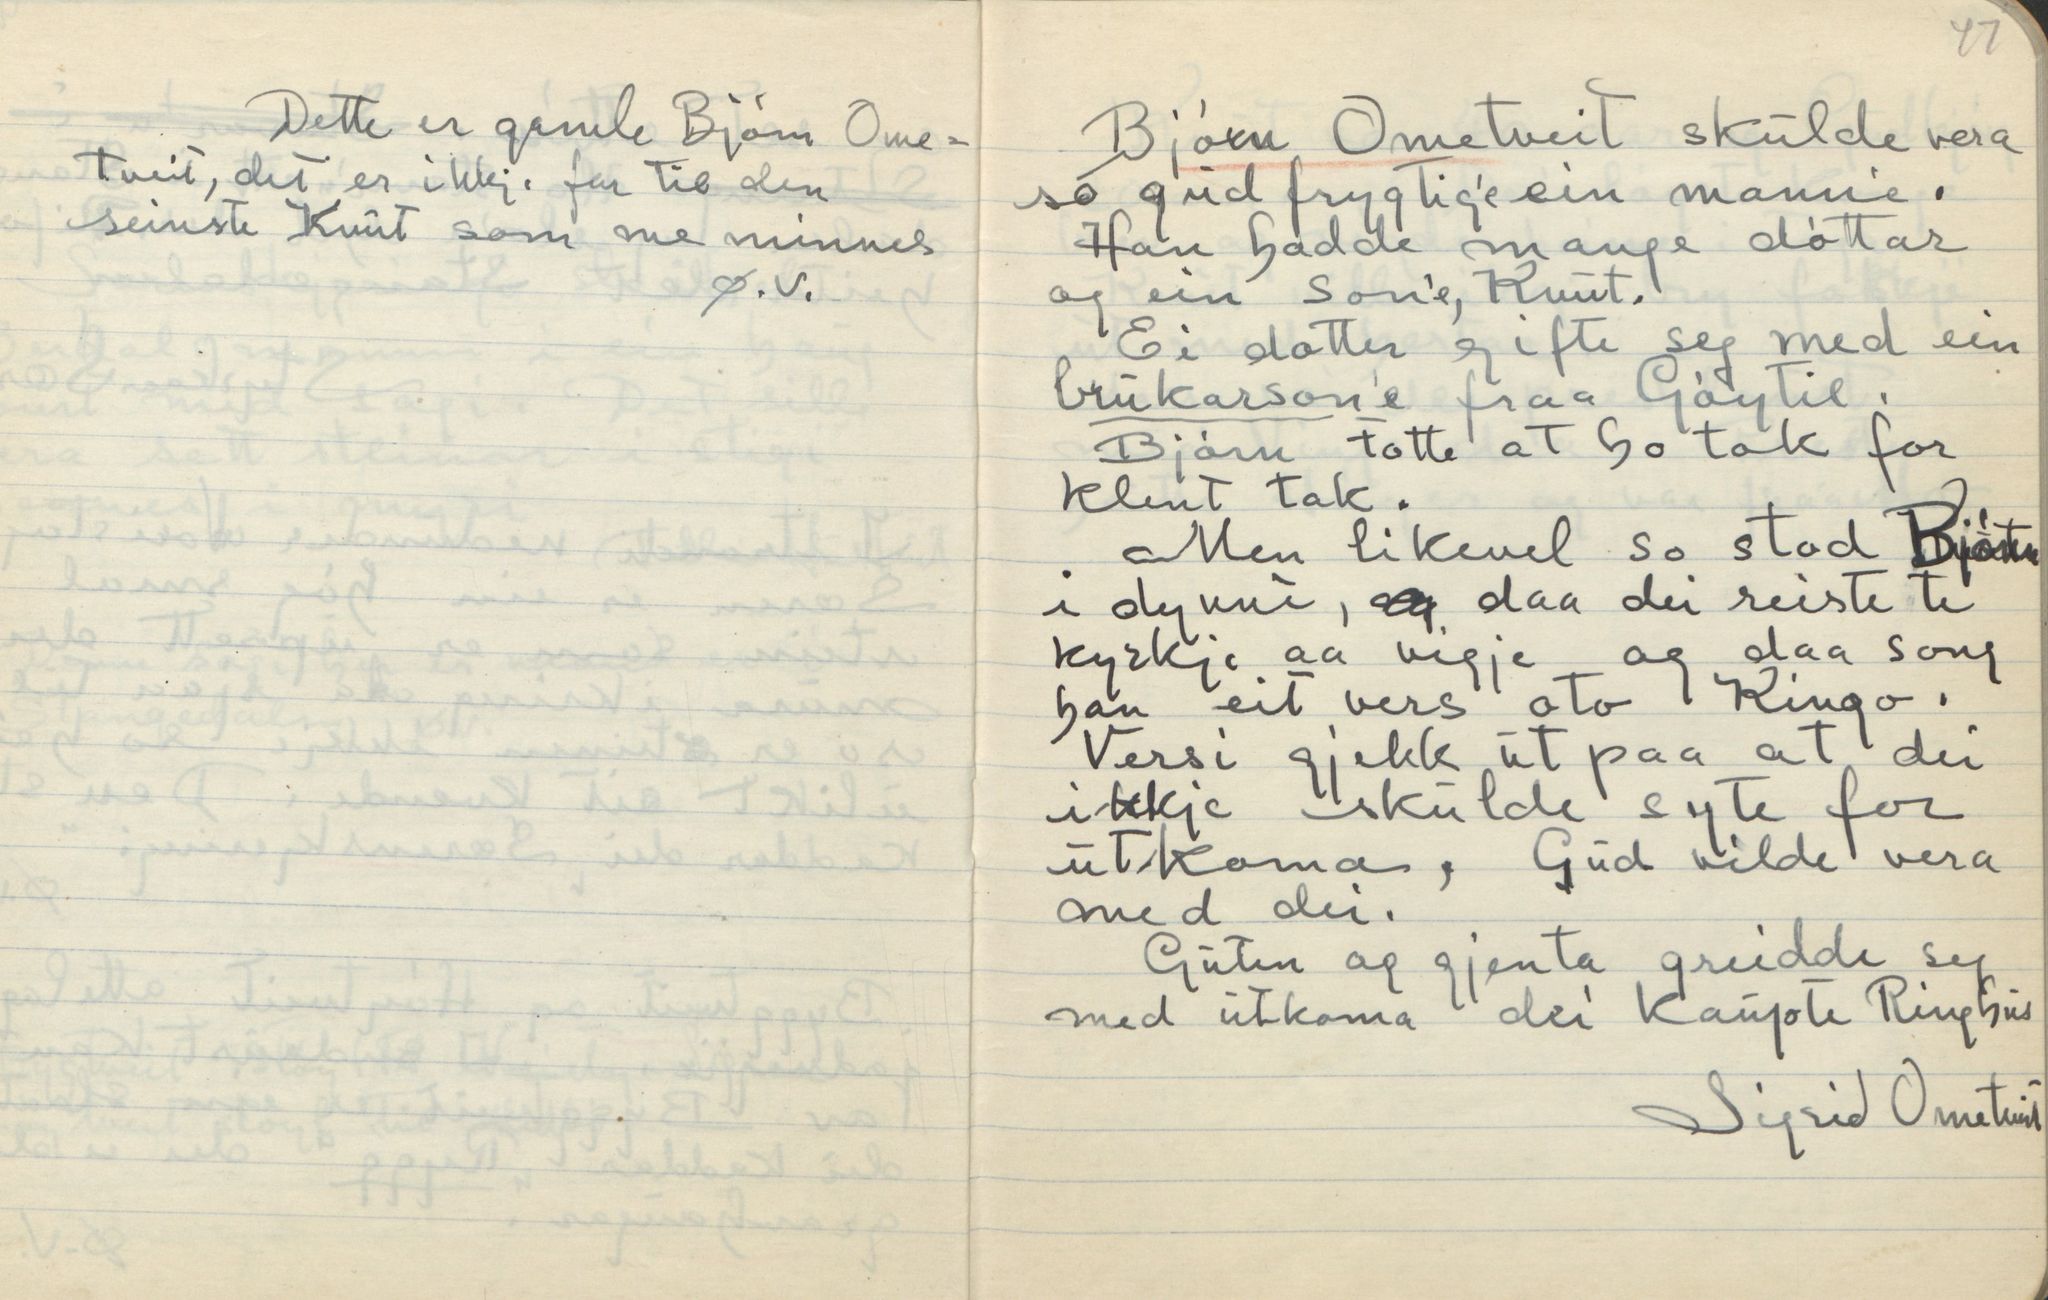 Dette er gamle Bjórn Ome=
tveit, det er ikkje far til den
seinste Knut som me minnes
Ø.V.
47
Bjórn Ometveit skulde vera
so gudfrygtig'e ein mann'e.
Han hadde mange dóttar
og ein son'e, Knut.
Ei dotter gifte seg med ein
brukarson'e fraa Góytil.
Bjórn totte at ho tok for
klent tak.
Men likevel so stod Bjórn
i dynni, daa dei reiste te
kyrkje aa vigje og daa song
han eit vers oto Kingo.
Versi gjekk ut paa at dei
ikkje skulde syte for
utkoma, Gud vilde vera
med dei.
Guten og gjenta greidde seg
med utkoma dei kaupte Ringhus
Sigrid Ometveit